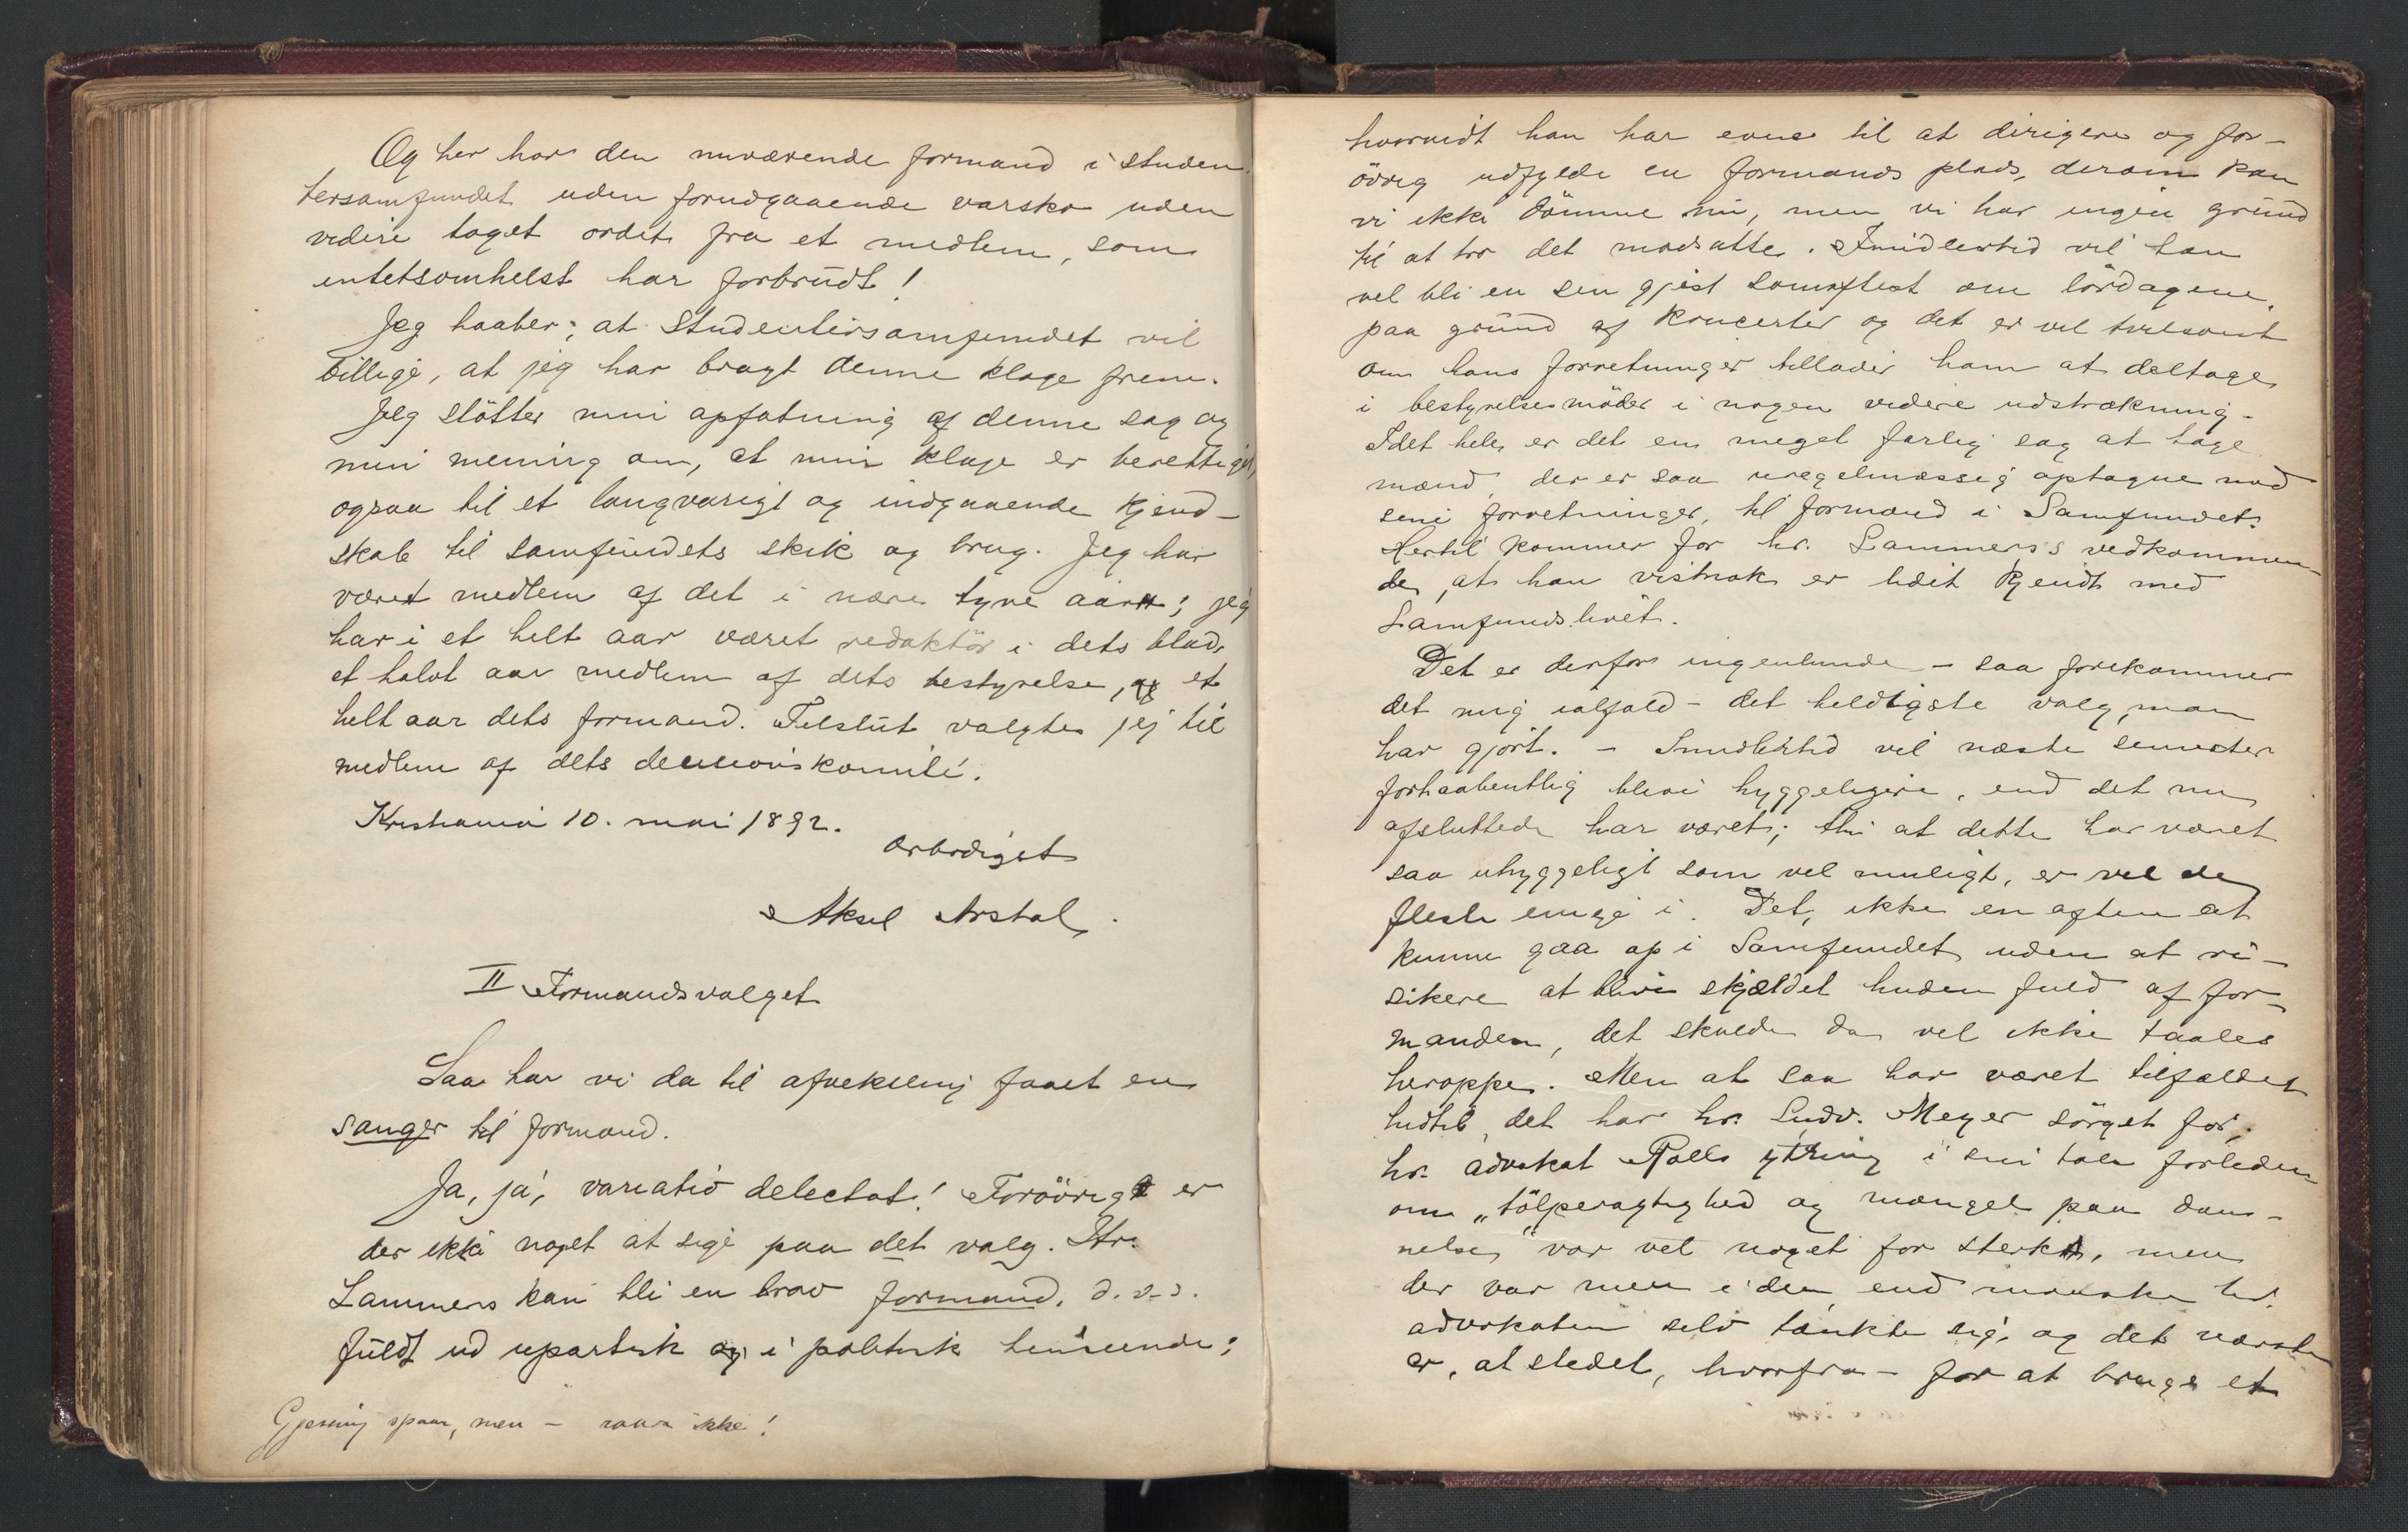 Og her har den nuværende formand i studen-
tersamfundet uden forudgaaende varsko uden
videre taget ordet fra et medlem, som
intetsomhelst har forbrudt!
Jeg haaber, at Studentersamfundet vil
billige, at jeg har bragt denne klage frem.
Jeg stötter min opfatning af denne sag og
min mening om, at min klage er berettiget,
ogsaa til et langvarigt og indgaaende kjend-
skab til samfundets skik og brug. Jeg har
været medlem af det i nære tyve aar; jeg
har i et helt aar været redaktör i dets blad,
et halvt aar medlem af dets bestyrelse, og et
helt aar dets formand. Tilslut valgtes jeg til
medlem af dets decisionskomité.
Kristiania 10. mai 1892.
Ærbödigst
Aksel Arstal.
II Formandsvalget
Saa har vi da til afveksling faaet en
sanger til formand.
Ja, ja, variatio delectat! Foröörigt er
der ikke noget at sige paa det valg. Hr.
Lammers kan bli en brav formand, d.v.s.
fuldt ud upartisk og i politisk henseende;
Gjerning spaar, men – raar ikke!
hvorvidt han har evne til at dirigere og for-
övrig udfylde en formands plads, derom kan
vi ikke dömme nu, men vi har ingen grund
til at tro det modsatte. Imidlertid vil han
vel bli en sen gjest somoftest om lördagene,
paa grund af koncerter og det er vel tvilsomt
om hans forretninger tillader ham at deltage
i bestyrelsesmöder i nogen videre udstrækning.
Idet hele er det en meget farlig sag at tage
mænd, der er saa uregelmæssig optagne med
sine forretninger, til formænd i Samfundet.
Hertil kommer for hr. Lammers's vedkommen-
de, at han vistnok er lidet kjendt med
Samfundslivet.
Det er derfor ingenlunde – saa forekommer
det mig ialfald – det heldigste valg, man
har gjort. – Imidlertid vil næste semester
forhaabentlig blive hyggeligere, end det nu
afsluttede har været; thi at dette har været
saa uhyggeligt som vel muligt, er vel de
fleste enige i. Det, ikke en aften at
kunne gaa op i Samfundet uden at ri-
sikere at blive skjældet huden fuld af for-
manden, det skulde da vel ikke taales
heroppe. Men at saa har været tilfældet
hidtil, det har hr. Ludv. Meyer sörget for,
hr. advokat Rolls ytring i sin tale forleden
om „tölperagtighed og mangel paa dan-
nelse" var vel noget for sterk, men
der var mere i den end maaske hr.
advokaten selv tænkte sig, og det værste
er, at stedet, hvorfra – for at bruge et